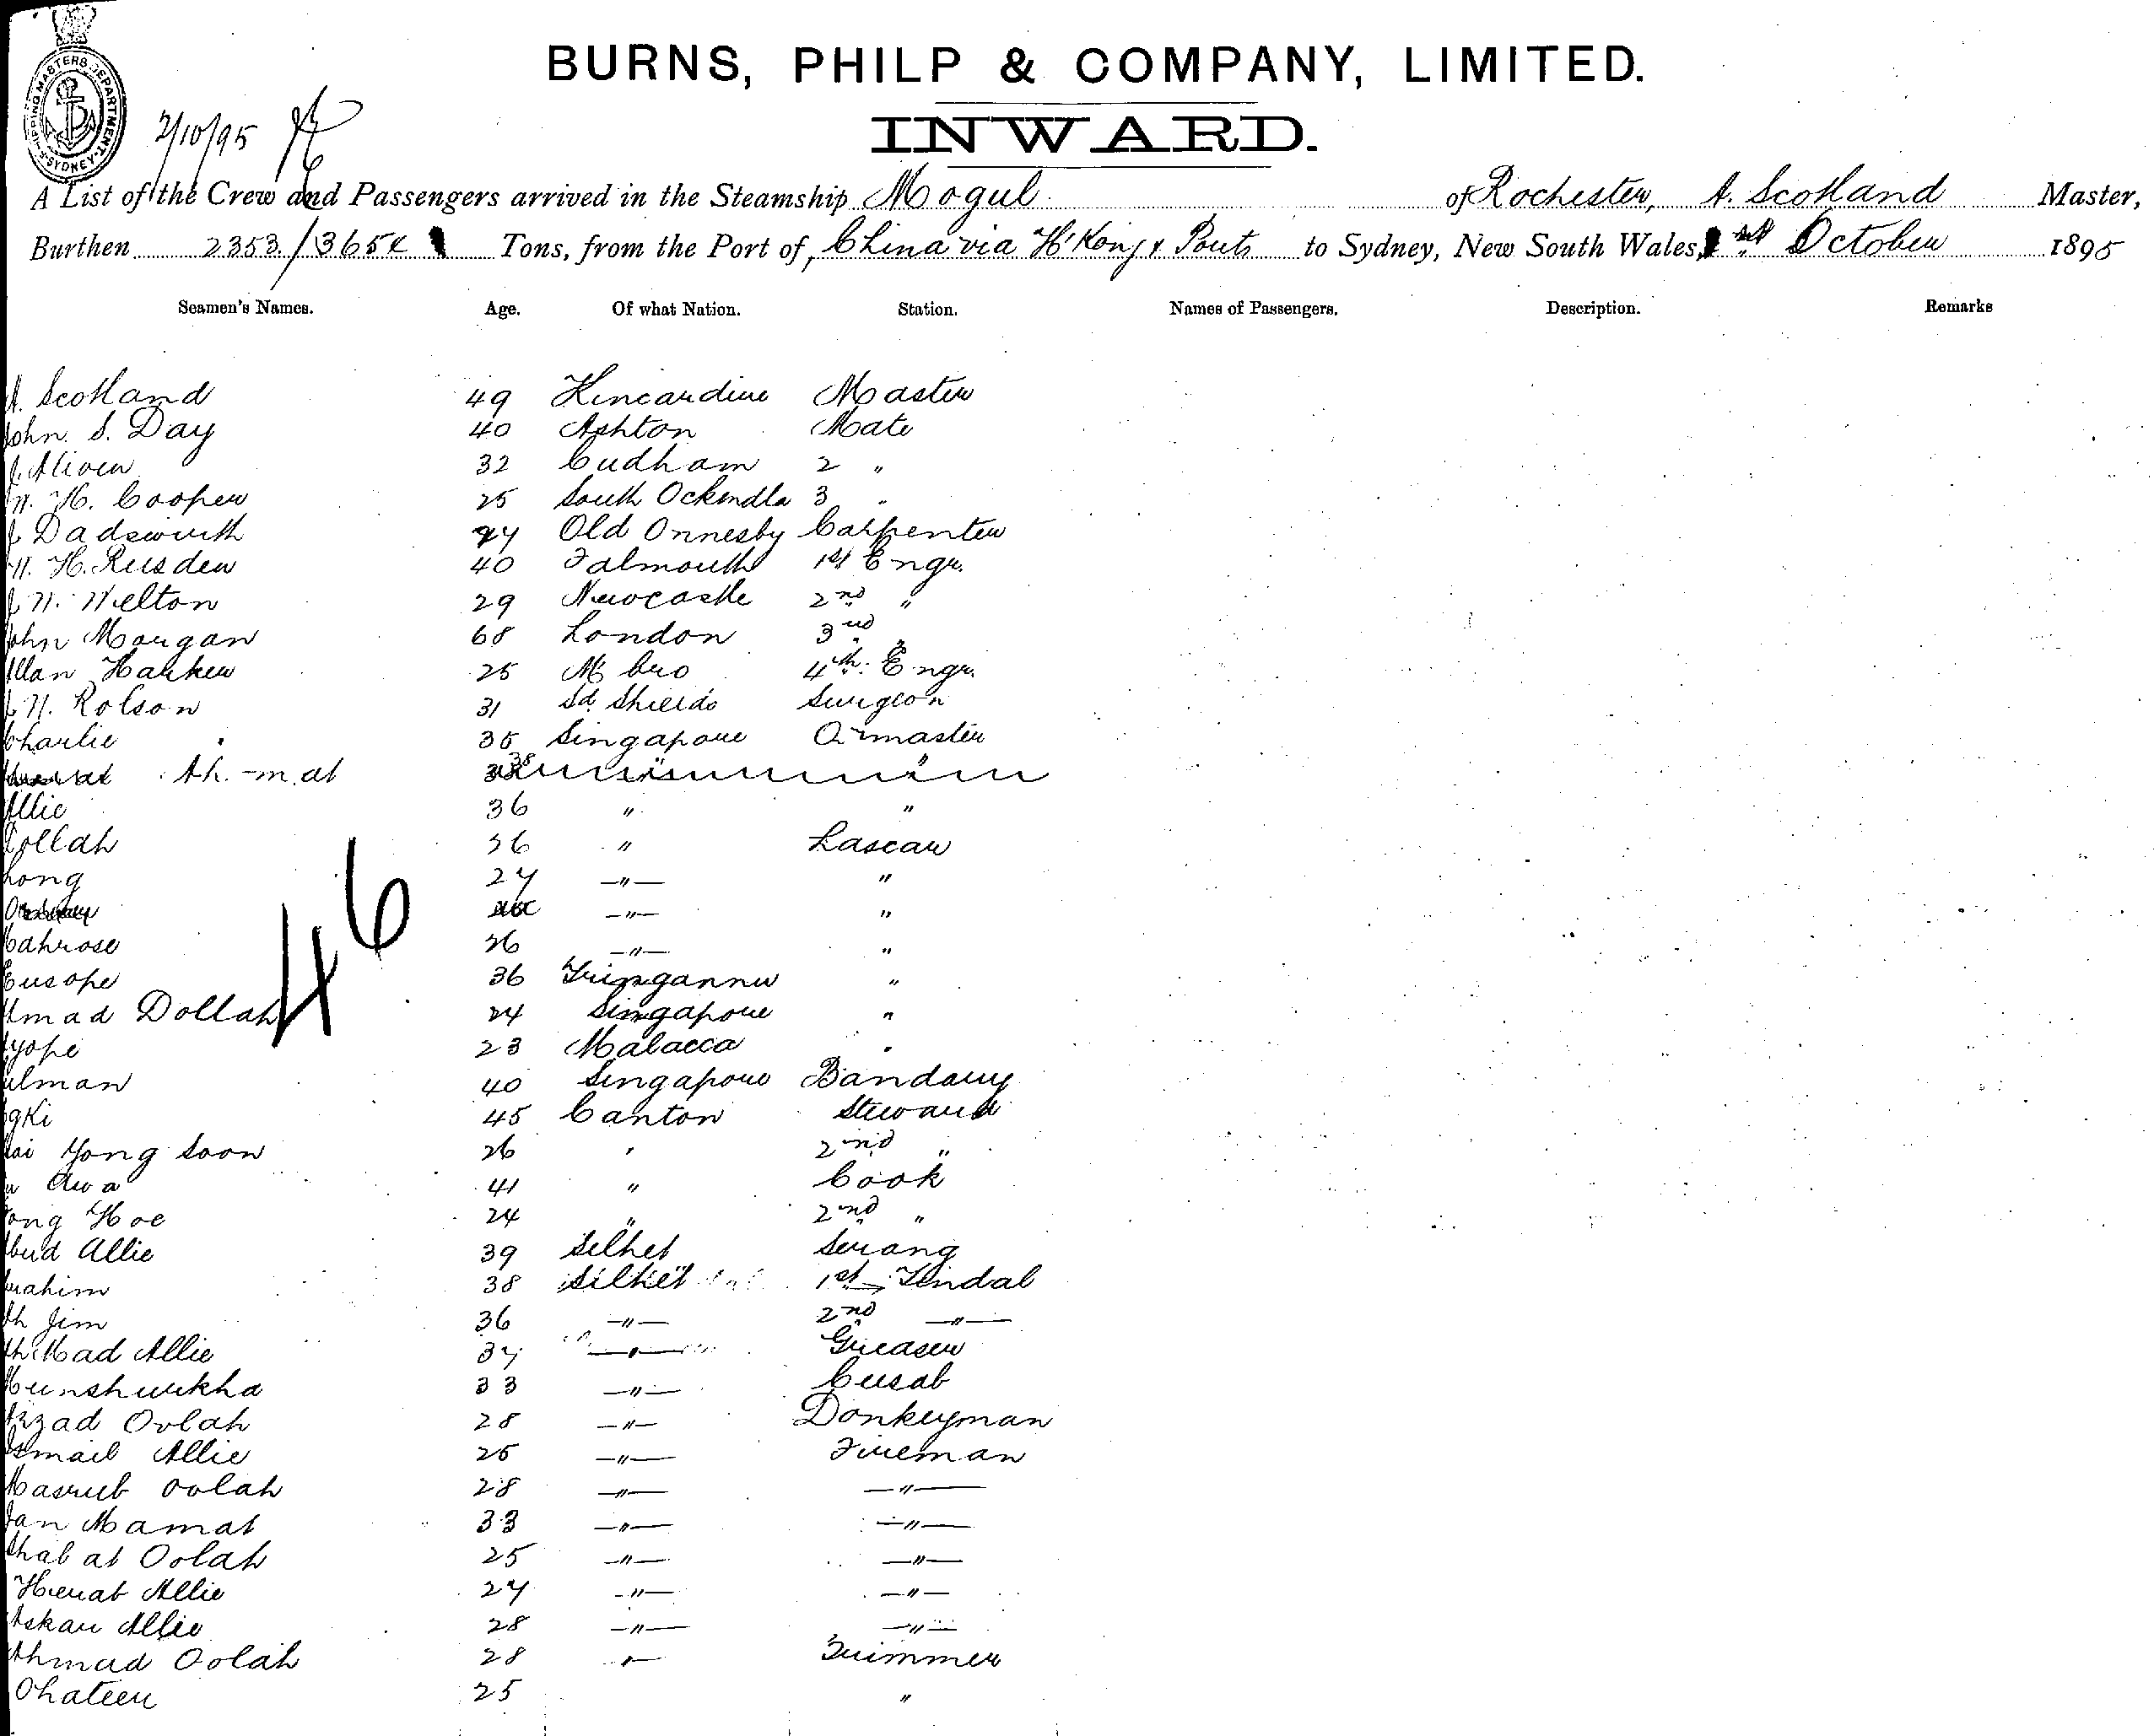 BURNS, PHILP & COMPANY, LIMITED.
INWARD.
SHIPPING MASTERS DEPARTMENT SYDNEY
2/10/95
A List of the Crew and Passengers arrived in the Steamship Mogul of Rochester, A. Scotland Master,
Burthen 2353/3654 Tons, from the Port of China via H'Kong & Ports to Sydney, New South Wales, 1st October 1895
Seamen's Names. Age. Of what Nation. Station. Names of Passengers. Description. Remarks
A. Scotland 49 Kincardine Master
John S. Day 40 Ashton Mate
32 Cudham 2 "
W. H. Cooper 25 South 3 "
J Dadswurth Old Ormesby Carpenter
W. H. Rusden 40 Falmouth 1st Engr.
J W. Welton 29 Newcastle 2nd "
John Morgan 68 London 3rd "
Allan Harker 25 M'bro 4th. Engr.
J W. Rolson 31 So. Shields Surgeon
Charlie 35 Singapore Qrmaster
Ah.-mat 38 " "
Allie 36 " "
Dollah 36 " Lascar
Long 27 —"— "
—"— "
Bahrose 26 —"— "
Eusope 36 Tringannu "
Amad Dollah 24 Singapore "
23 Malacca "
40 Singapore Bandary
45 Canton Steward
Yong Soon 26 " 2nd "
Awa 41 " Cook
Hoe 24 " 2nd "
Allie 39 Silhet Serang
Ibrahim 38 Silhet 1st Tindal
Jim 36 —"— 2nd —"—
Allie 37 —"— Greaser
Munshurkha 33 —"— Cusab
Azzad Oolah 28 —"— Donkeyman
Ismail Allie 25 —"— Fireman
Masrub Oolah 28 —"— —"—
Jan Mamat 33 —"— —"—
Shab at Oolah 25 —"— —"—
Allie 27 —"— —"—
Askar Allie 28 —"— —"—
Ahmad Oolah 28 —"— Trimmer
Ohateer 25 "
46